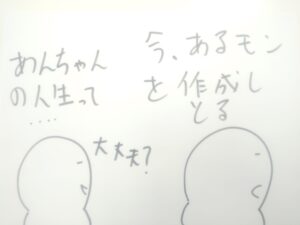 今、あるモン
を作成し
とる
めんちゃん
の人生って
....
大丈夫?